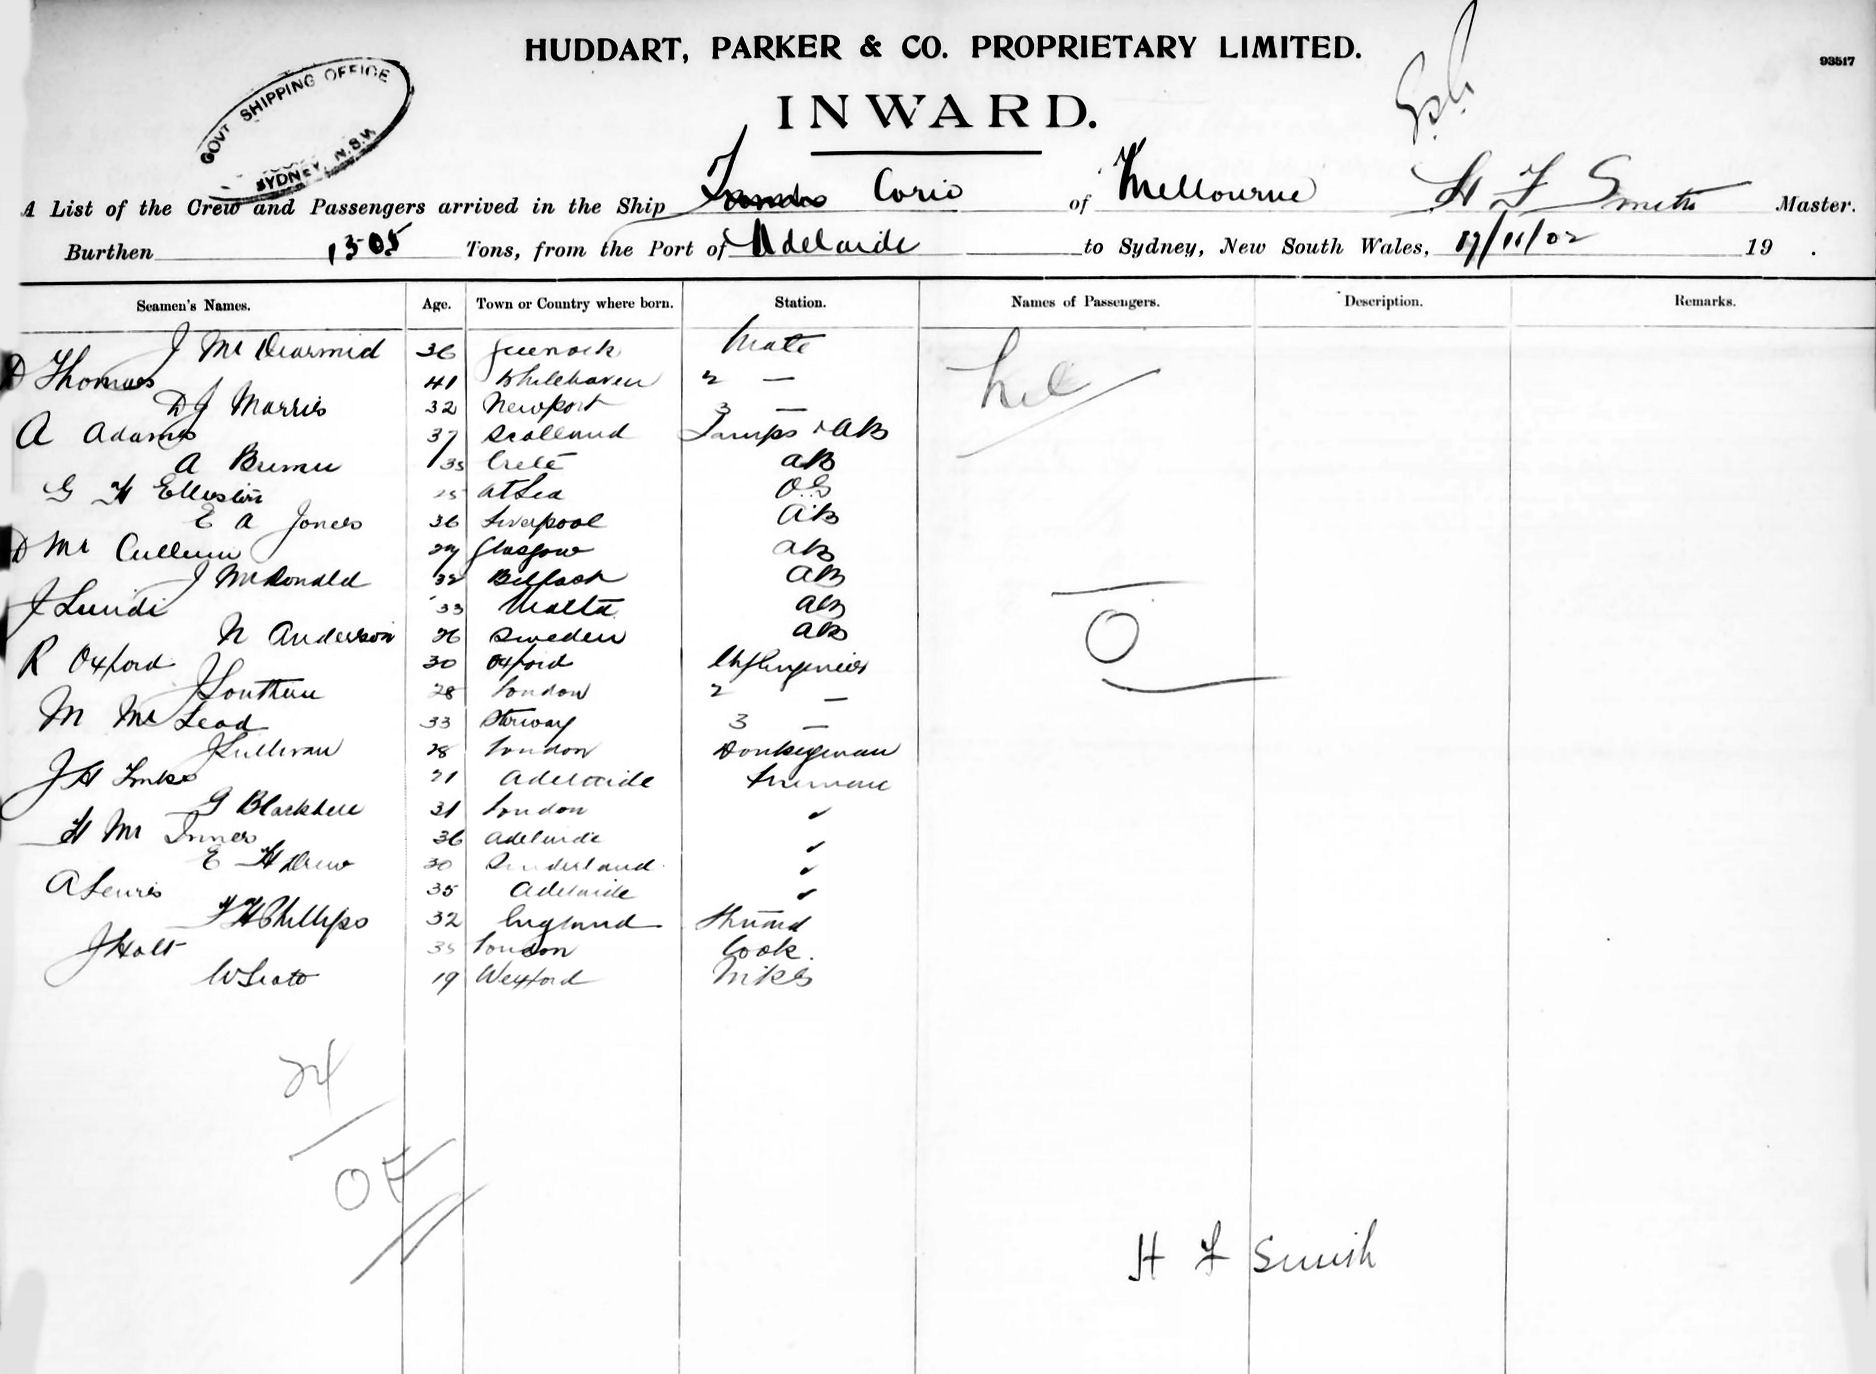 HUDDART, PARKER & CO. PROPRIETARY LIMITED.
93517
INWARD.
GOVT SHIPPING OFFICE SYDNEY N.S.W
A List of the Crew and Passengers arrived in the Ship Corio of Melbourne H F Smith Master.
Burthen 1305 Tons, from the Port of Adelaide to Sydney, New South Wales, 17/11/02 19 .
Seamen's Names. Age. Town or Country where born. Station. Names of Passengers. Description. Remarks.
J Mc Dearmid 36 Greenock Mate
D Thomas 41 Whitehaven 2 —
D J Morris 32 Newport 3 —
A Adams 37 Scotland Lamps & AB
A 35 Crete AB
G H 25 At Sea OS
E A Jones 36 Liverpool AB
D Mc Cullum 27 Glasgow AB
J McDonald 32 Belfast AB
J 33 Malta AB
N Anderson 26 Sweden AB
R Oxford 30 Oxford Engineer
J Southern 28 London 2 —
M Mc Leod 33 3 —
J Sullivan 28 London Donkeyman
J H 21 Adelaide Fireman
G 31 London ✓
H Mc Innes 36 Adelaide ✓
E H Drew 30 Sunderland ✓
A Lewis 35 Adelaide ✓
F H Phillips 32 England Steward
J Holt 35 London Cook.
W 19 Wexford
24
O
H F Smith